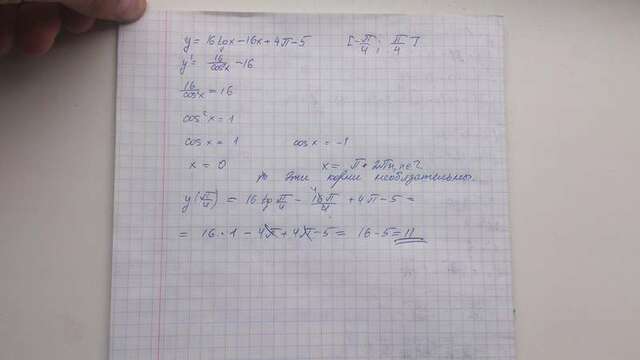 y = 16 tg x - 16x + 4π - 5 [-π/4 ; π/4]
y' = 16/cos²x - 16
16/cos²x = 16
cos²x = 1
cos x = 1 cos x = -1
x = 0 x = π + 2πn, n∈Z
эти корни необязательны.
y(π/4) = 16 tg π/4 - 16π/4 + 4π - 5 =
= 16 · 1 - 4π + 4π - 5 = 16 - 5 = 11